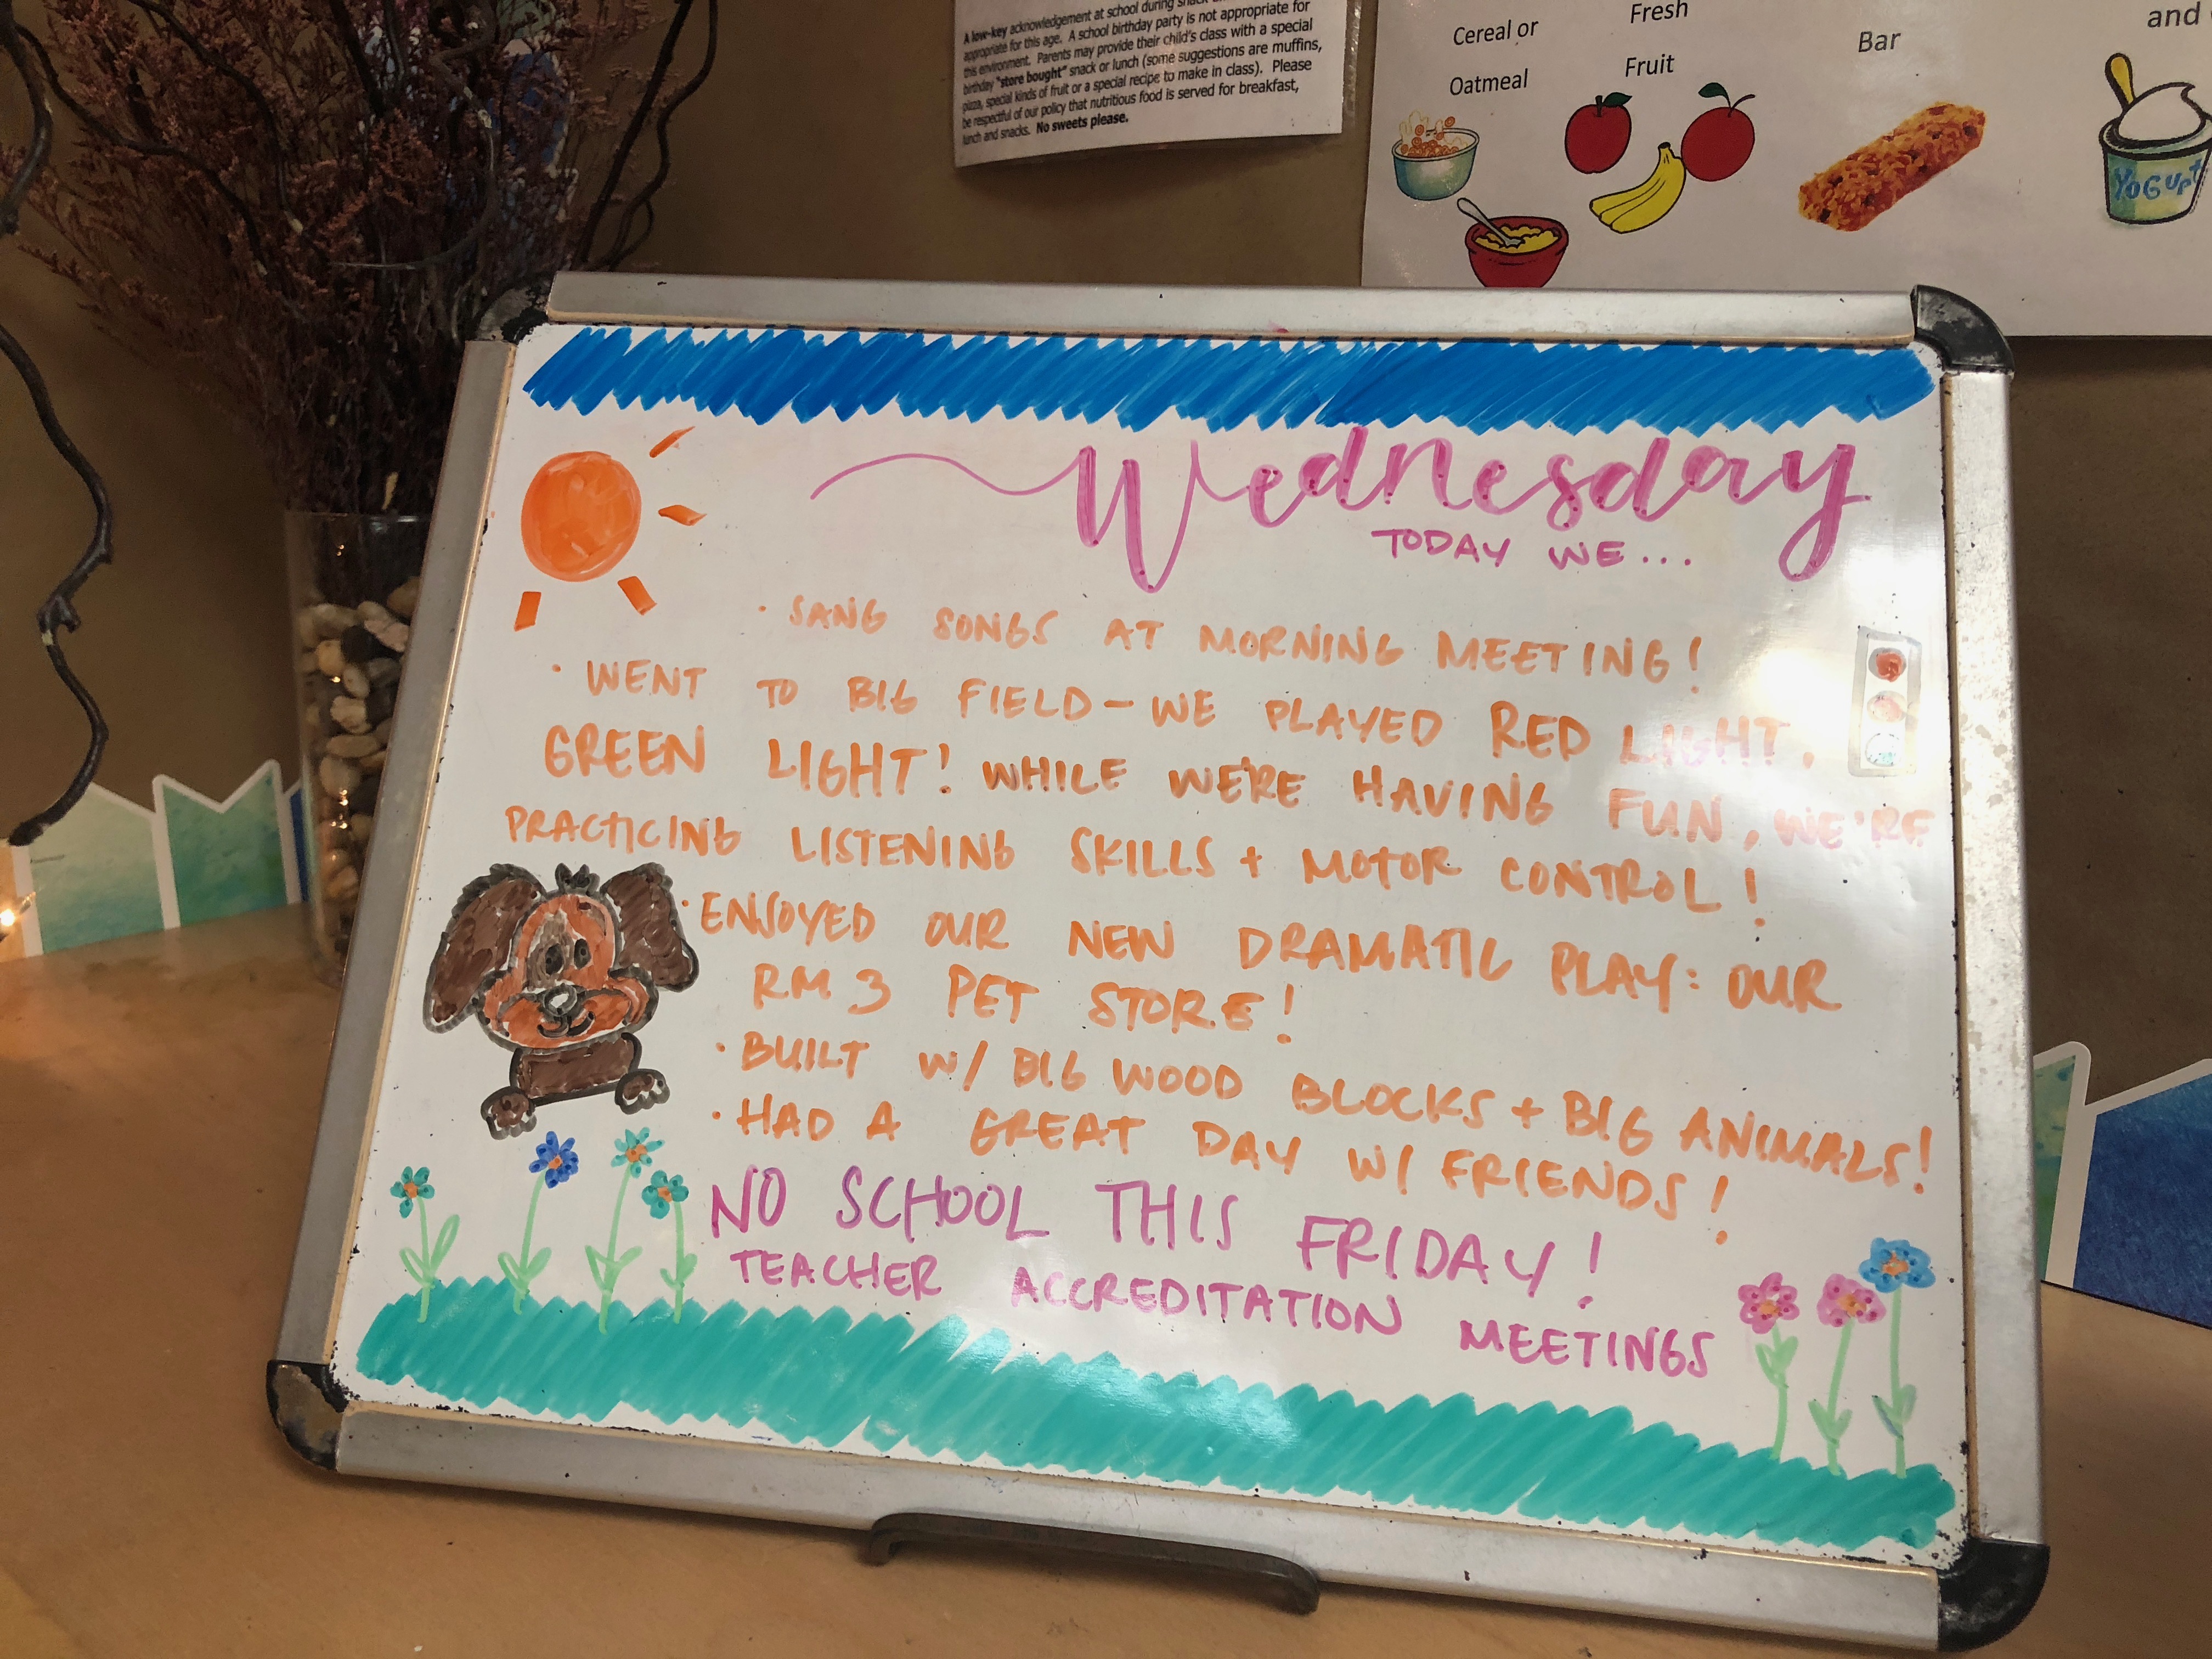 A low-key acknowledgement at school during
appropriate for this age. A school birthday party is not appropriate for
this environment. Parents may provide their child's class with a special
birthday "store bought" snack or lunch (some suggestions are muffins,
pizza, special kinds of fruit or a special recipe to make in class). Please
be respectful of our policy that nutritious food is served for breakfast,
lunch and snacks. No sweets please.
Cereal or
Oatmeal
Fresh
Fruit
Bar
and
YOGURT
Wednesday
TODAY WE...
• SANG SONGS AT MORNING MEETING!
• WENT TO BIG FIELD - WE PLAYED RED LIGHT,
GREEN LIGHT! WHILE WE'RE HAVING FUN, WE'RE
PRACTICING LISTENING SKILLS + MOTOR CONTROL!
• ENJOYED OUR NEW DRAMATIC PLAY: OUR
RM 3 PET STORE!
• BUILT W/ BIG WOOD BLOCKS + BIG ANIMALS!
• HAD A GREAT DAY W/ FRIENDS!
NO SCHOOL THIS FRIDAY!
TEACHER ACCREDITATION MEETINGS